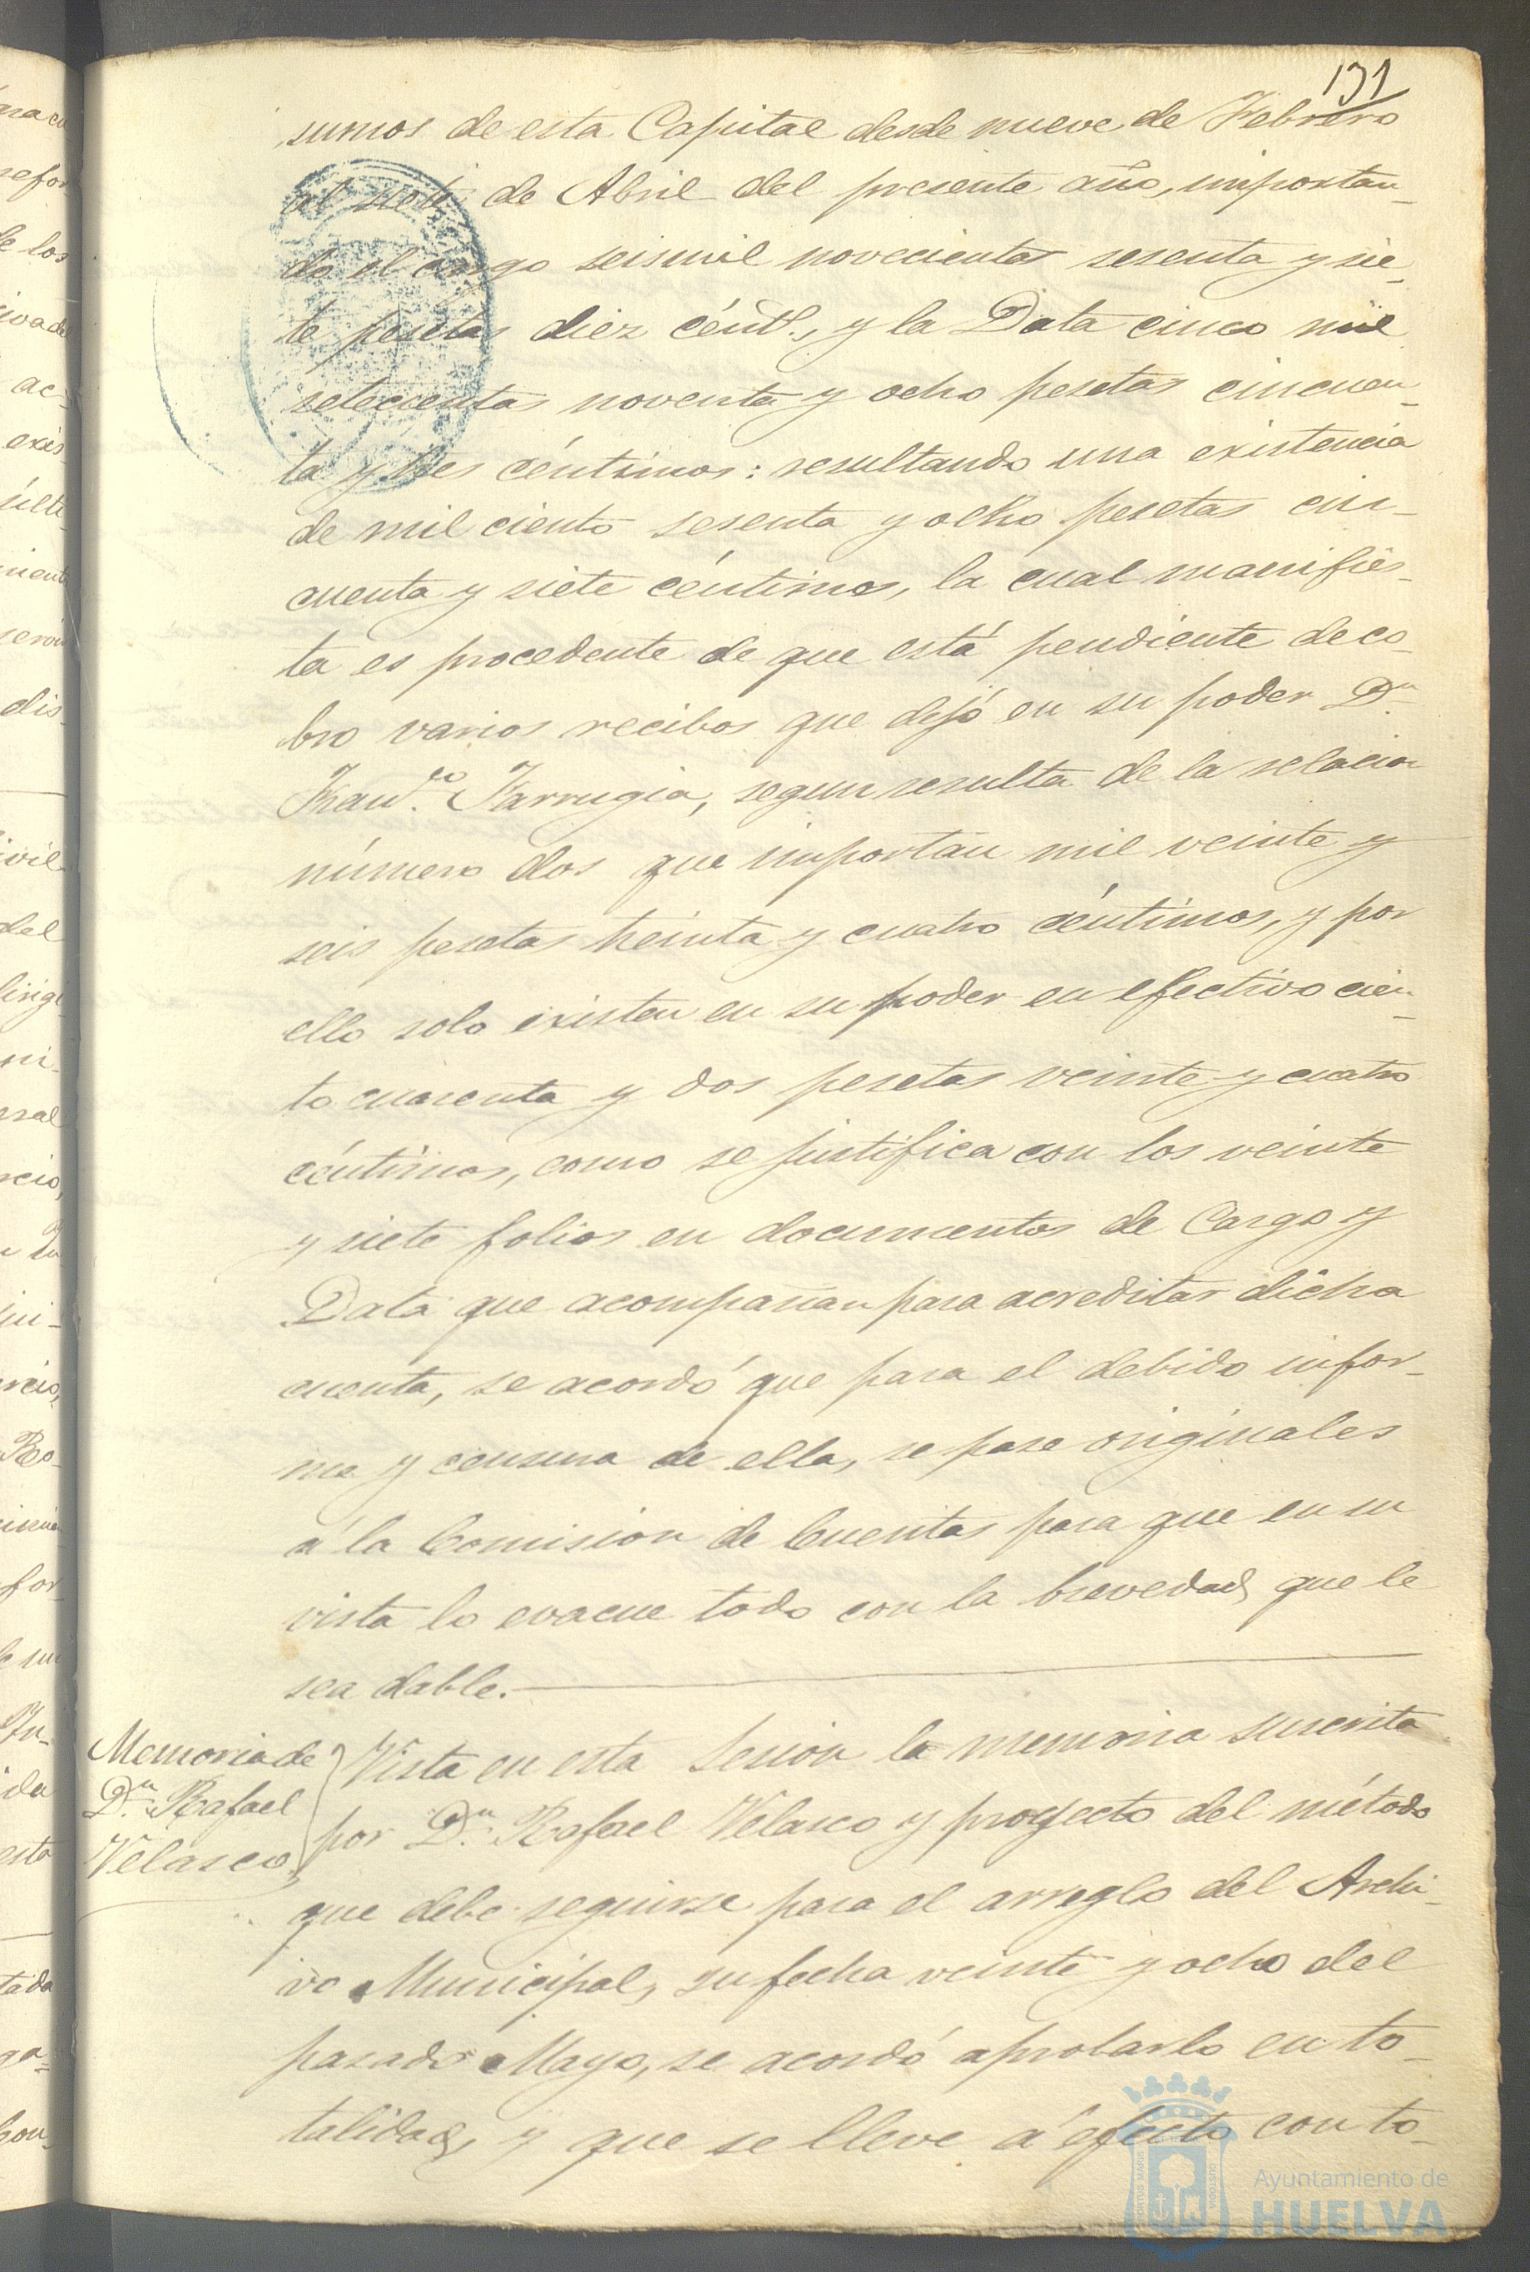 131
sumos de esta Capital desde nueve de Febrero
al siete de Abril del presente año, importan_
do el cargo seismil novecientas sesenta y sie_
te pesetas diez cént.s, y la Data cinco mil
setecientas noventa y ocho pesetas cincuen_
ta y tres céntimos: resultando una existencia
de mil ciento sesenta y ocho pesetas cin_
cuenta y siete céntimos, la cual manifies_
ta es procedente de que está pendiente de co_
bro varios recibos que dejó en su poder D.n
Fran.co Farrugia, segun resulta de la relacion
número dos que importan mil veinte y
seis pesetas treinta y cuatro céntimos, y por
ello solo existen en su poder en efectivo cien_
to cuarenta y dos pesetas veinte y cuatro
céntimos, como se justifica con los veinte
y siete folios en documentos de Cargo y
Data que acompañan para acreditar dicha
cuenta, se acordó que para el debido infor_
me y censura de ella, se pase originales
á la Comision de Cuentas para que en su
vista lo evacue todo con la brevedad que le
sea dable.
Memoria de
D.n Rafael
Velasco
Vista en esta Sesion la memoria suscrita
por D.n Rafael Velasco y proyecto del método
que debe seguirse para el arreglo del Archi_
vo Municipal, su fecha veinte y ocho del
pasado Mayo, se acordó aprobarlo en to_
talidad, y que se lleve á efecto con to_
Ayuntamiento de
HUELVA